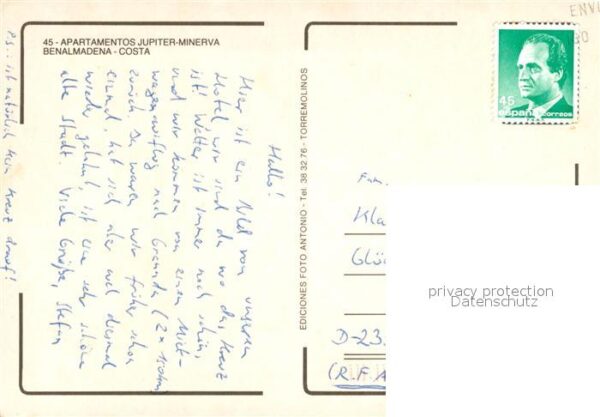 45 - APARTAMENTOS JUPITER-MINERVA
BENALMADENA - COSTA
Hallo!
Hier ist ein Bild von unserem
Hotel wir sind da wo das Kreuz
ist! Wetter ist immer noch schön,
und wir kommen von einem Miet-
wagenausflug nach Granada (2 x 150km)
zurück. Da waren wir früher schon
einmal, hat sich aber mal diesmal
wieder gelohnt, ist eine sehr schöne
alte Stadt. Viele Grüße, Stefan
P.S.: ist natürlich kein Kreuz drauf!
EDICIONES FOTO ANTONIO - Tel. 38 32 76 - TORREMOLINOS
ENVI
30
45
españa correos
Fam.
Kla
Glü
D-23
(R.F.A
privacy protection
Datenschutz